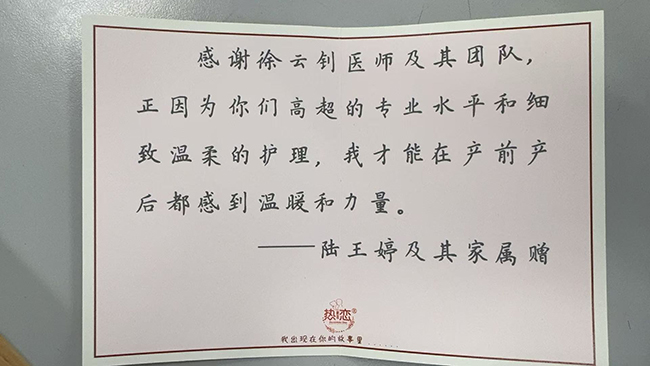 感谢徐云钊医师及其团队,
正因为你们高超的专业水平和细
致温柔的护理,我才能在产前产
后都感到温暖和力量。
——陆王婷及其家属赠
热恋®
我出现在你的故事里......